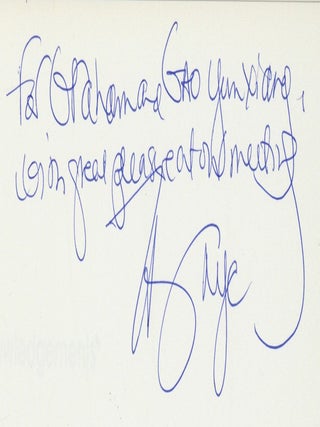 For Graham and Gao Yunxiang,
with great pleasure at our meeting